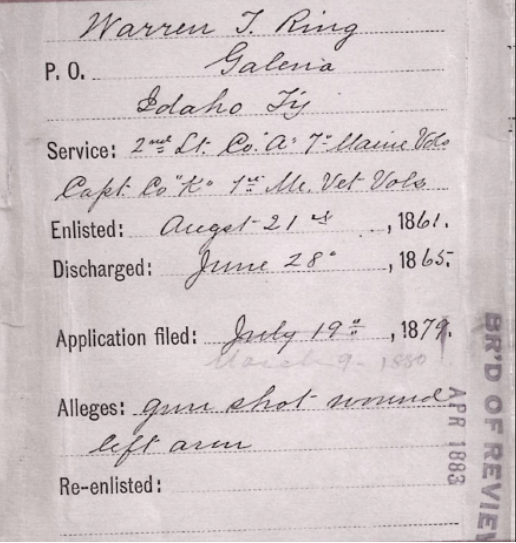 Warren T. Ring
P. O. Galena
Idaho Ty
Service: 2nd Lt. Co. "A" 7" Maine Vols
Capt. Co "K" 1st Me. Vet Vols
Enlisted: Augst 21st, 1861.
Discharged: June 28", 1865.
Application filed: July 19", 1879.
March 9 - 1880
Alleges: gun shot wound
left arm
Re-enlisted:
BR'D OF REVIEW
APR 1883